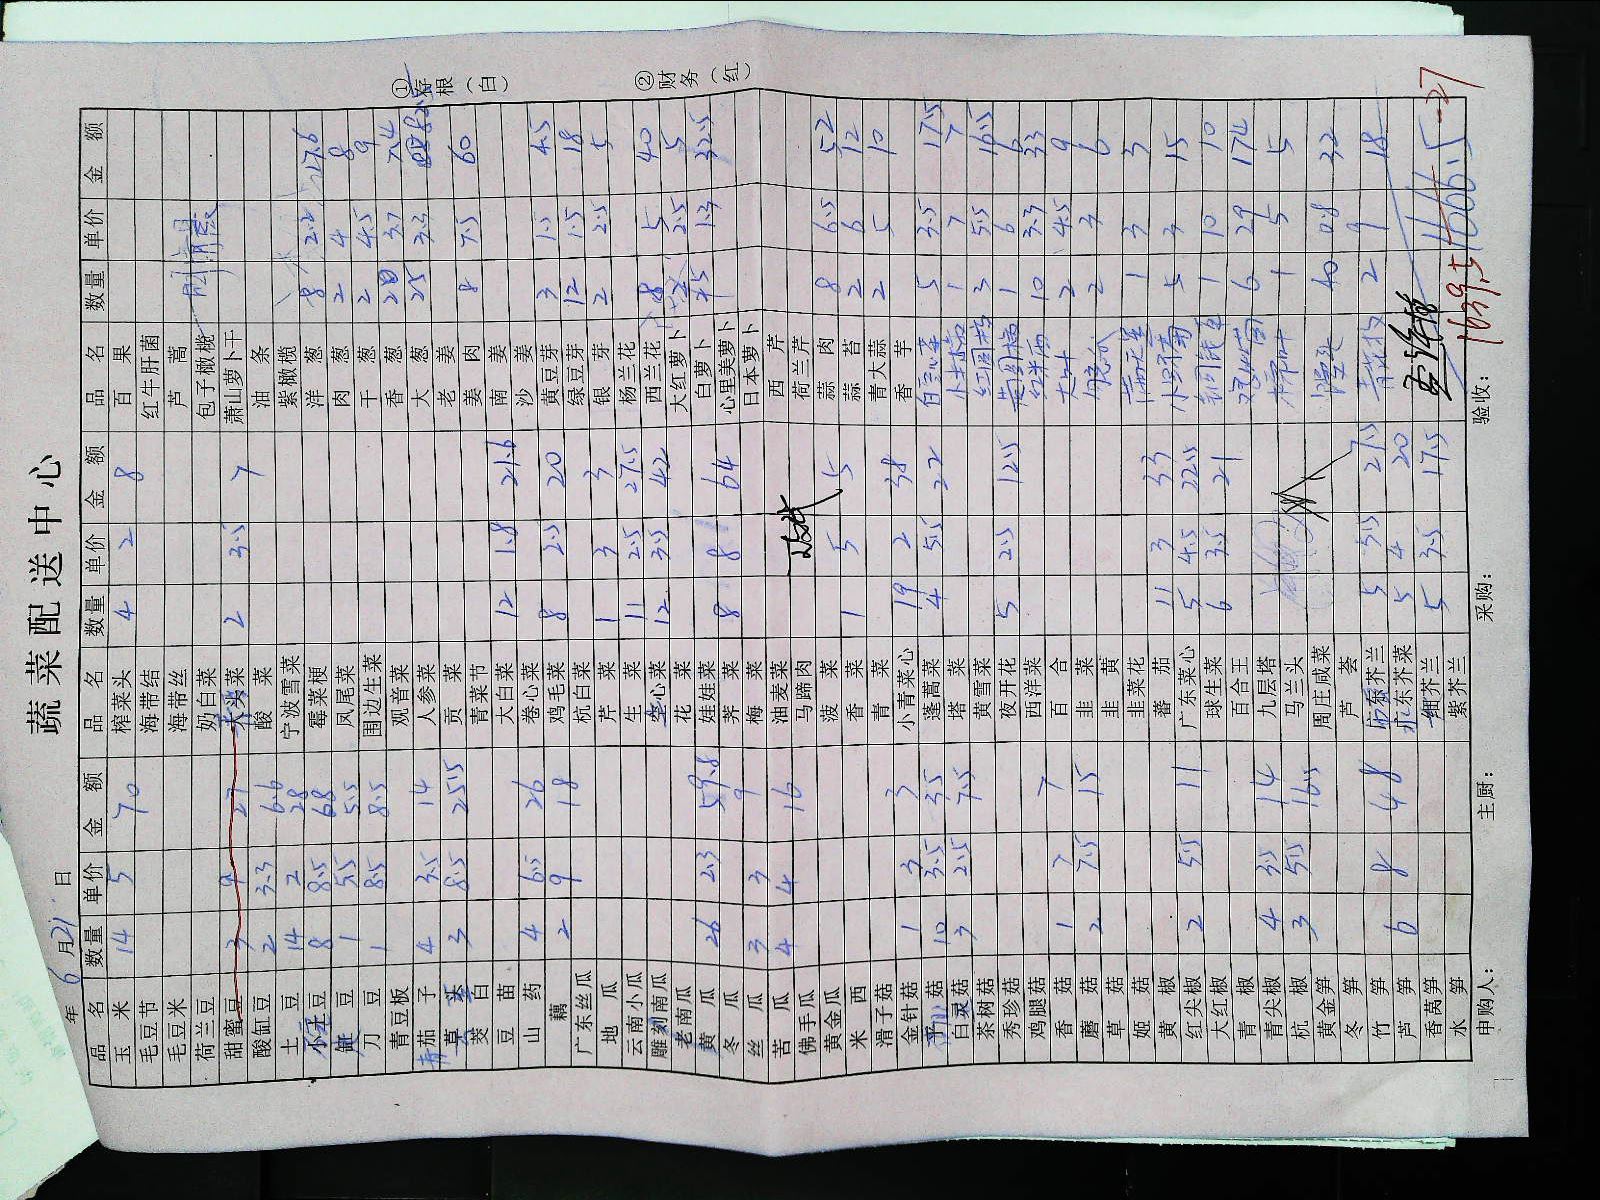 蔬菜配送中心
年 6月21日
品名 数量 单价 金额 品名 数量 单价 金额 品名 数量 单价 金额
玉米 14 5 70 榨菜头 4 2 8 百果
毛豆节 海带结 红牛肝菌
毛豆米 海带丝 芦蒿
荷兰豆 奶白菜 包子橄榄
甜蜜豆 3 9 27 大头菜 2 3.5 7 萧山萝卜干
酸缸豆 2 3.3 6.6 酸菜 油条
土豆 14 2 28 宁波雪菜 紫橄榄
豆 8 8.5 68 霉菜梗 洋葱 8 2.2 17.6
豆 1 5.5 5.5 凤尾菜 肉葱 2 4 8
刀豆 1 8.5 8.5 围边生菜 干葱 2 4.5 9
青豆板 观音菜 香葱 20 3.7 74
茄子 4 3.5 14 人参菜 大葱 25 3.3 82.5
草头 3 8.5 25.5 贡菜 老姜
茭白 青菜节 姜肉 8 7.5 60
豆苗 大白菜 12 1.8 21.6 南姜
山药 4 6.5 26 卷心菜 沙姜
藕 2 9 18 鸡毛菜 8 2.5 20 黄豆芽 3 1.5 4.5
广东丝瓜 杭白菜 绿豆芽 12 1.5 18
地瓜 芹菜 1 3 3 银芽 2 2.5 5
云南小瓜 生菜 11 2.5 27.5 杨兰花
雕刻南瓜 空心菜 12 3.5 42 西兰花 8 5 40
老南瓜 花菜 大红萝卜 2 2.5 5
黄瓜 26 2.3 59.8 娃娃菜 8 8 64 白萝卜 25 1.3 32.5
冬瓜 荠菜 心里美萝卜
丝瓜 3 3 9 梅菜 日本萝卜
苦瓜 4 4 16 油麦菜 西芹
佛手瓜 马蹄肉 荷兰芹
黄金瓜 菠菜 蒜肉 8 6.5 52
米西 香菜 1 5 5 蒜苔 2 6 12
滑子菇 青菜 青大蒜 2 5 10
金针菇 1 3 3 小青菜心 19 2 38 香芋
平菇 10 3.5 35 蓬蒿菜 4 5.5 22 5 3.5 17.5
白灵菇 3 2.5 7.5 塔菜 1 7 7
茶树菇 黄雪菜 红圆椒 3 5.5 16.5
秀珍菇 夜开花 5 2.5 12.5 黄圆椒 1 6 6
鸡腿菇 西洋菜 10 3.3 33
香菇 1 7 7 百合 2 4.5 9
蘑菇 2 7.5 15 韭菜 2 3 6
草菇 韭黄
姬菇 韭菜花 1 3 3
黄椒 蕃茄 11 3 33 5 3 15
红尖椒 2 5.5 11 广东菜心 5 4.5 22.5 1 10 10
大红椒 球生菜 6 3.5 21 6 29 174
青椒 百合王
青尖椒 4 3.5 14 九层塔 1 5 5
杭椒 3 5.5 16.5 马兰头
黄金笋 周庄咸菜 40 0.8 32
冬笋 芦荟
竹笋 6 8 48 芥兰 5 5.5 27.5 2 9 18
芦笋 广东芥菜 5 4 20
香莴笋 细芥兰 5 3.5 17.5
水笋 紫芥兰
1666.5 -27
1639.5
申购人： 主厨： 采购： 验收：
①存根（白）
②财务（红）